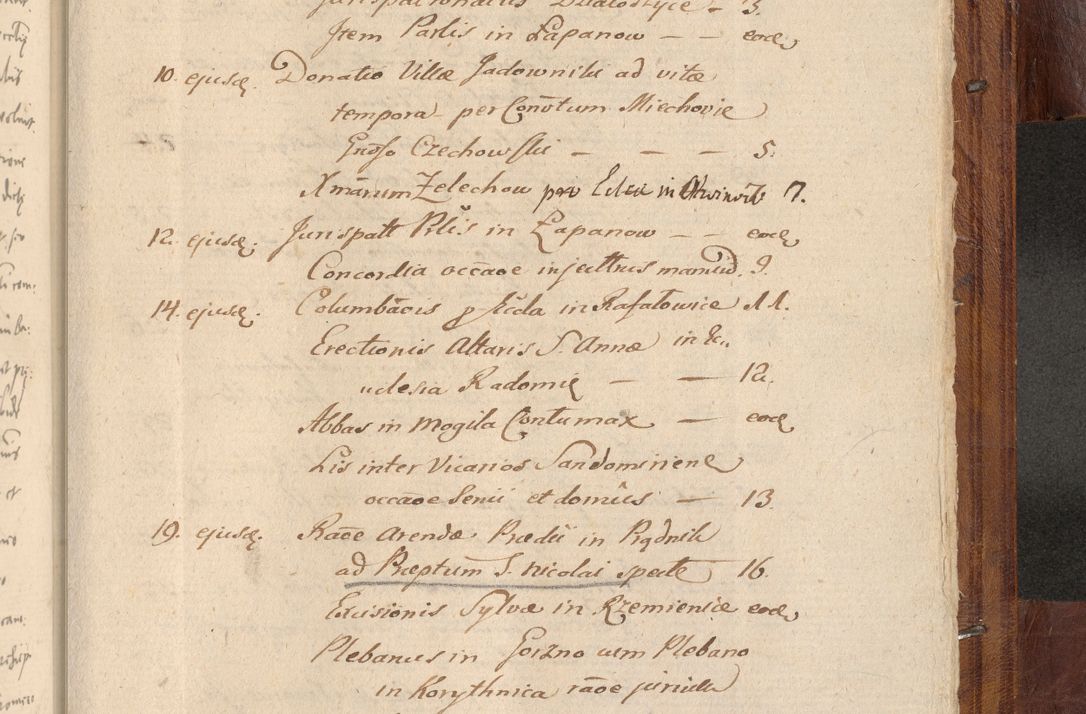 Jurispatronatus Działoszyce - 3.
Item Parlis in Łapanow - - eodę
10. ejusdę. Donatio Villæ Jadowniki ad vitæ
tempora per Conv̄tum Miechoviæ
Gnoſo Czechowſki - - - 5.
Xmārum Zelechow pro Eccla in 7.
12. ejusdę. Jurispatt Pŕlis in Łapanow - - eodę
Concordia occāōe injectrus manuū. 9.
14. ejusdę. Columbācis p̱ Sčda in Rafałowice 11.
Erectionis Altaris S. Annæ in Ec„
cclesia Radomię - - 12.
Abbas in Mogila Contumax - eodę
Lis inter Vicarios Sandomirienę
occāōe Senii et domûs - 13.
19. ejusdę. Raōe Arendæ Prædii in Prądnik
ad Præptum S. Nicolai spectē 16.
Excisionis Sylvæ in Rzemienice eodę
Plebanus in Gorzno cum Plebano
in Korythnica rāōe juriū